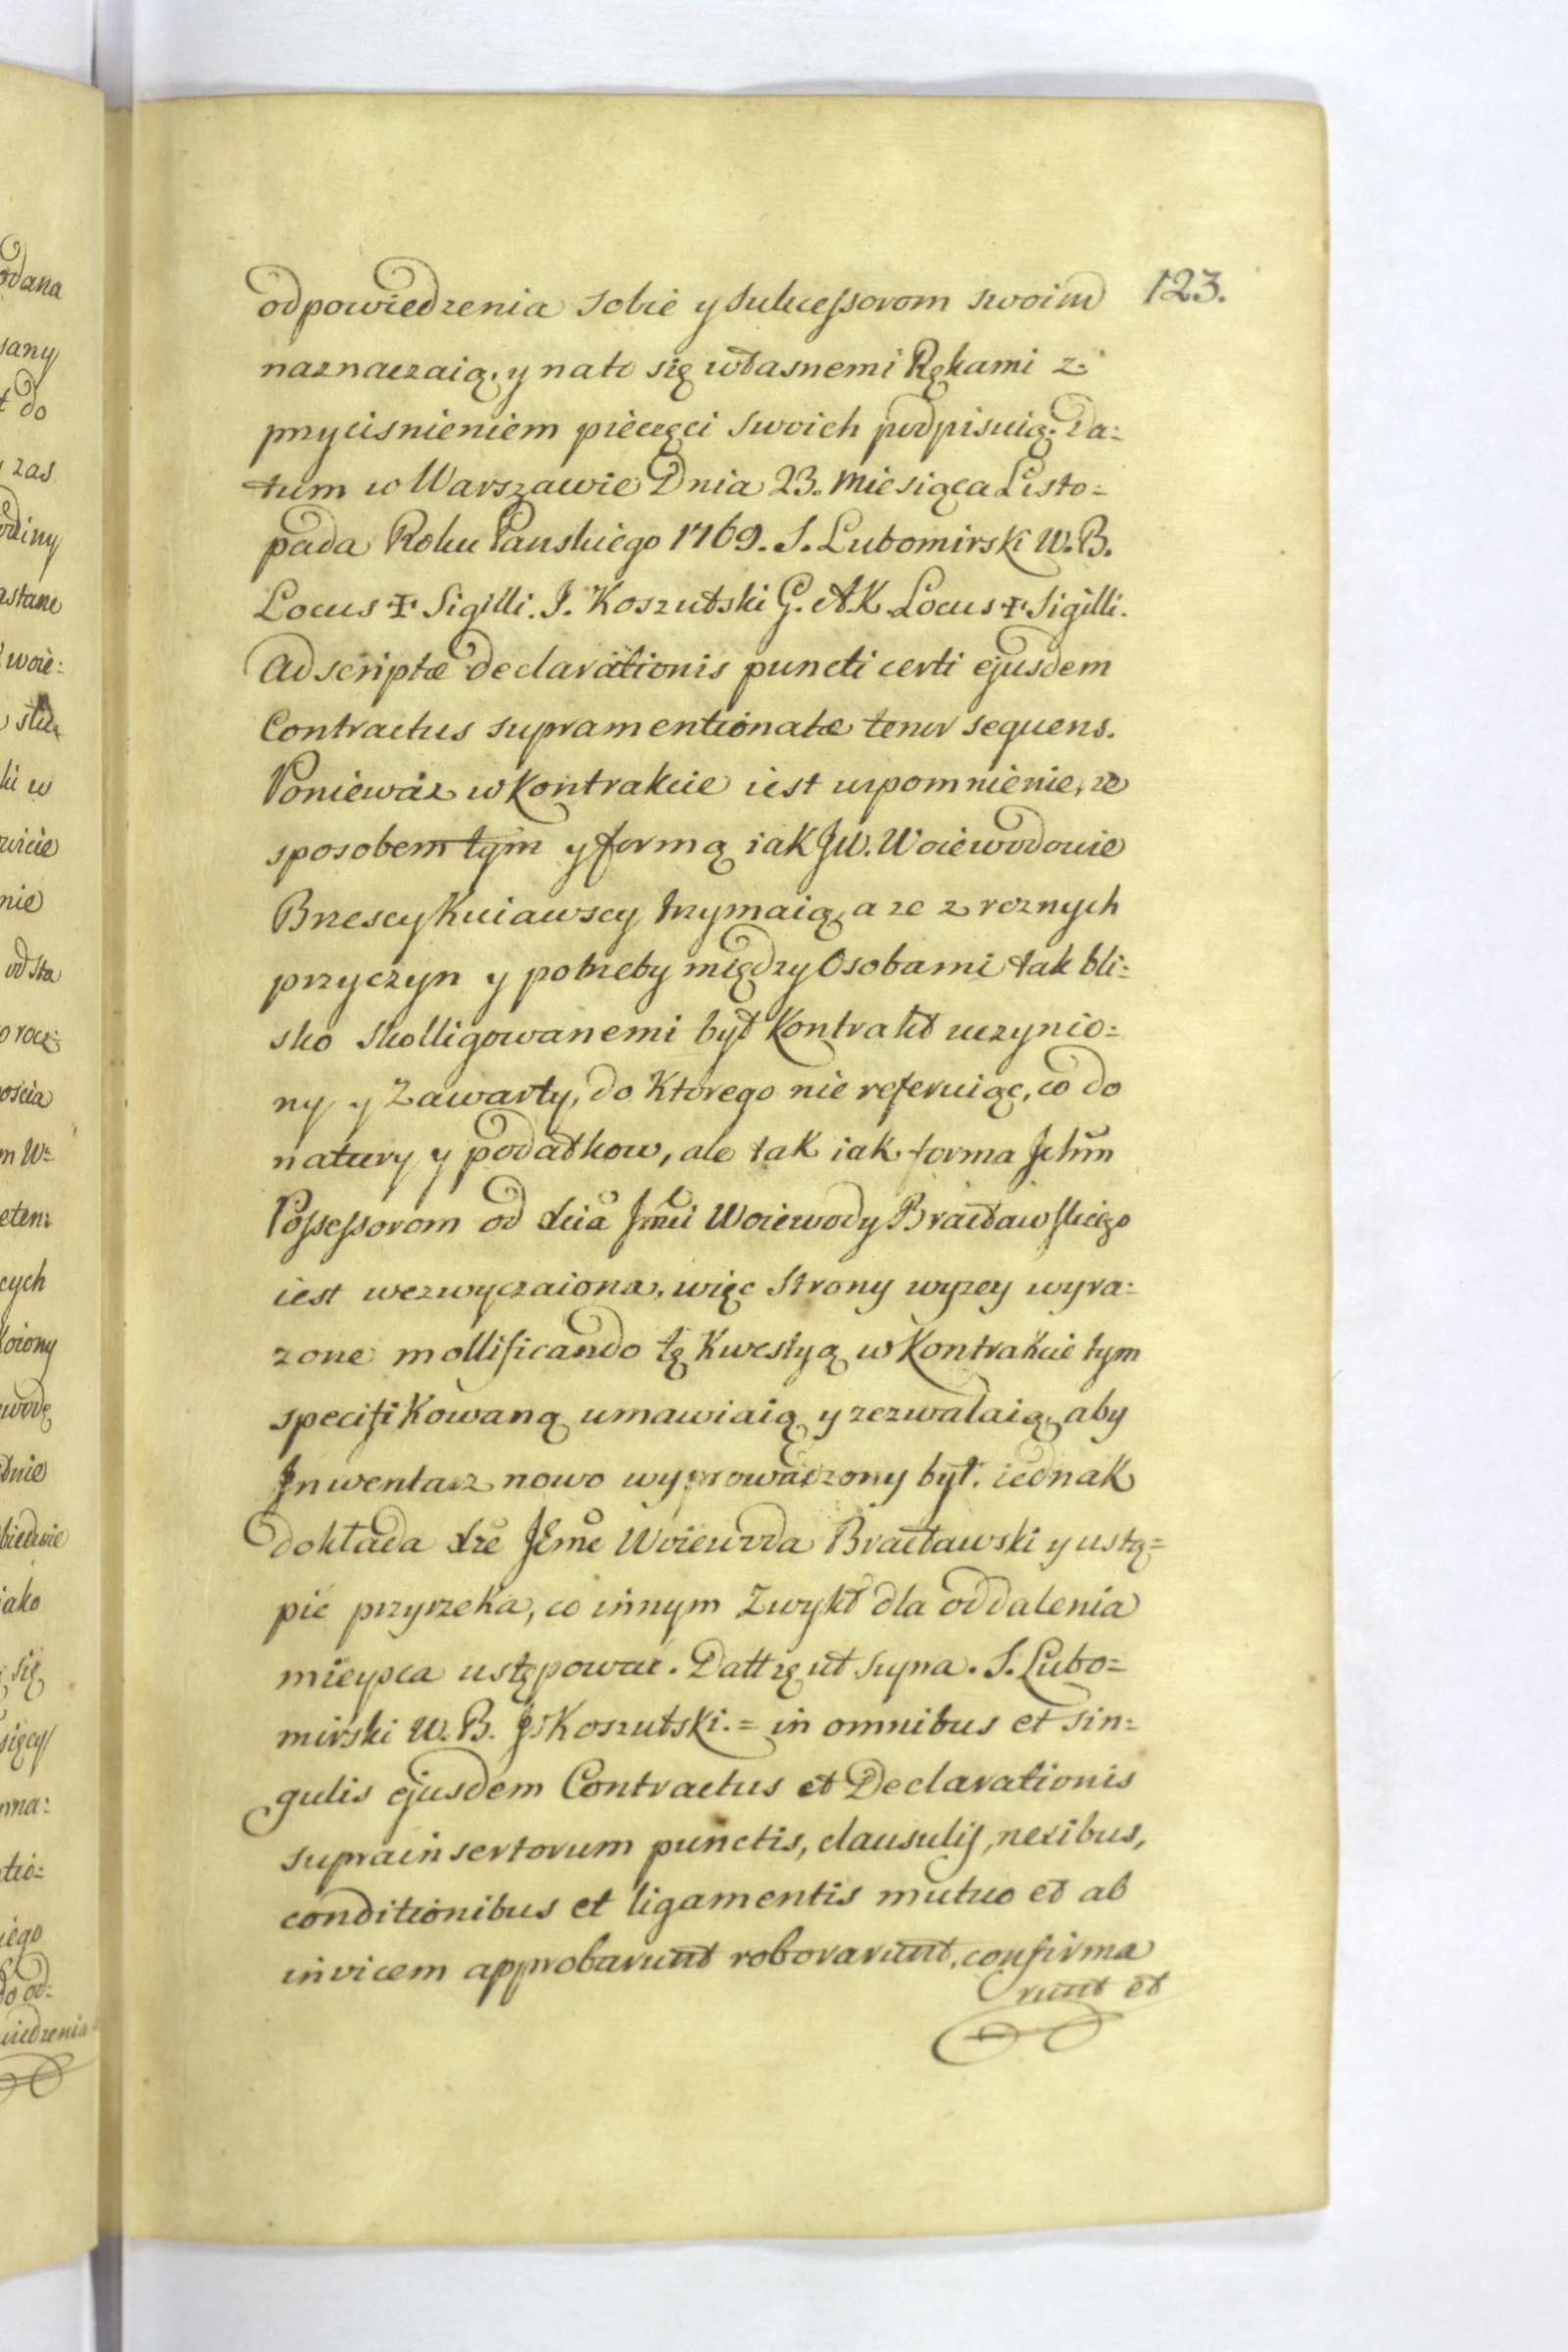 123.
odpowiedzenia sobie y sukcessorom swoim
naznaczaią, y nato się własnemi Rękami z
przyciśnieniem pieczęci swoich podpisuią. Da=
tum w Warszawie Dnia 23. Miesiąca Listo=
pada Roku Panskiego 1769. S. Lubomirski W. B.
Locus ☩ Sigilli. J. Koszutski G. A K. Locus ☩ Sigilli.
Adscriptæ declarationis puncti certi ejusdem
Contractus supramentionatæ tenor sequens.
Ponieważ w Kontrakcie iest wspomnienie, ze
sposobem tym y formą iak JW. Woiewodowie
Brzescy Kuiawscy trzymaią, a ze z roznych
przyczyn y potrzeby między Osobami tak bli=
sko skolligowanemi był Kontrakt uczynio=
ny y Zawarty, do Ktorego nie referuiąc, co do
natury y podatkow, ale tak iak forma
Possessorom od Woiewody Bracławskiego
iest wezwyczaiona, więc Strony wyzey wyra=
zone mollificando tę Kwestyą w Kontrakcie tym
specifikowaną umawiaią y zezwalaią, aby
Inwentarz nowo wyprowadzony był. iednak
dokłada Woiewoda Bracławski y ustą=
pić przyrzeka, co innym Zwykł dla oddalenia
mieysca ustępować. Datt ut supra. S. Lubo=
mirski W. B. J. Koszutski. = in omnibus et sin=
gulis ejusdem Contractus et Declarationis
suprainsertorum punctis, clausulis, nexibus,
conditionibus et ligamentis mutuo et ab
invicem approbarunt roborarunt, confirma
runt et